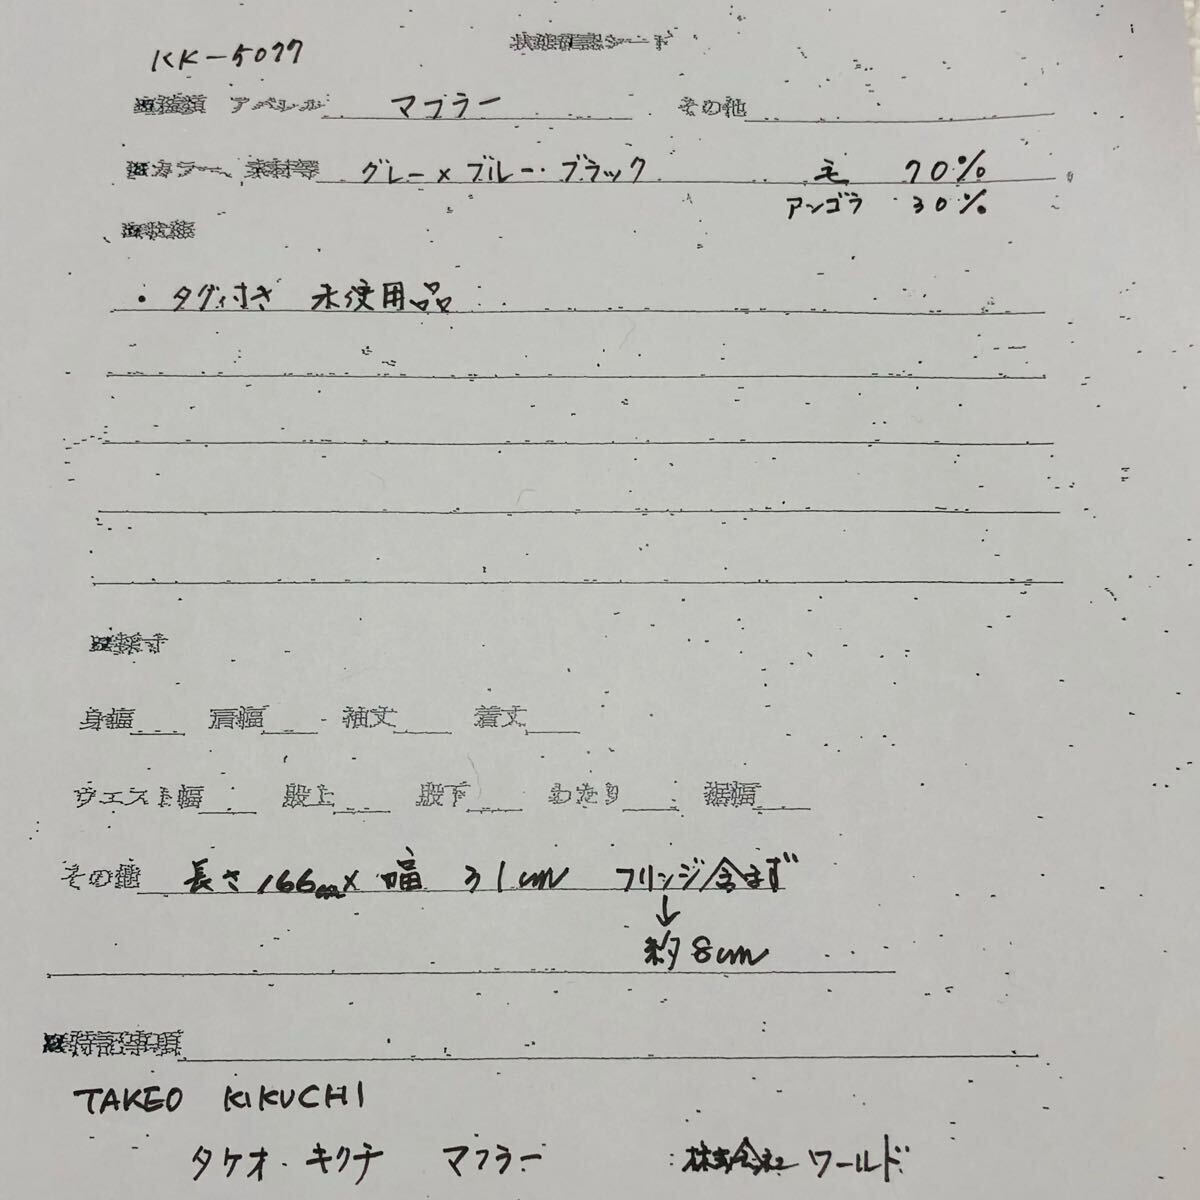 KK-5077
状態確認シート
※種類 アパレル マフラー その他
※カラー、素材等 グレー×ブルー・ブラック 毛 70%
アンゴラ 30%
※状態
・タグ付き 未使用品
※採寸
身幅 肩幅 袖丈 着丈
ウエスト幅 股上 股下 わたり 裾幅
その他 長さ166cm×幅 31cm フリンジ含まず
↓
約8cm
※特記事項
TAKEO KIKUCHI
タケオ・キクチ マフラー 株式会社 ワールド